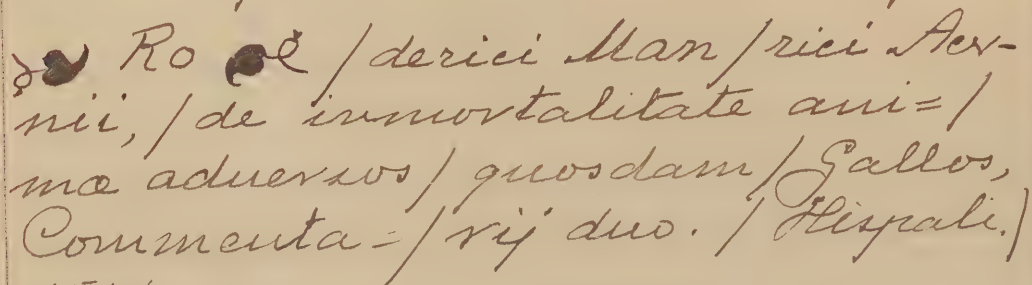 Ro /derici Man /rici Aer-
nii, /de inmortalitate ani=/
mæ aduersos / quosdam / Gallos,
Commenta=/rij duo. / Hispali./